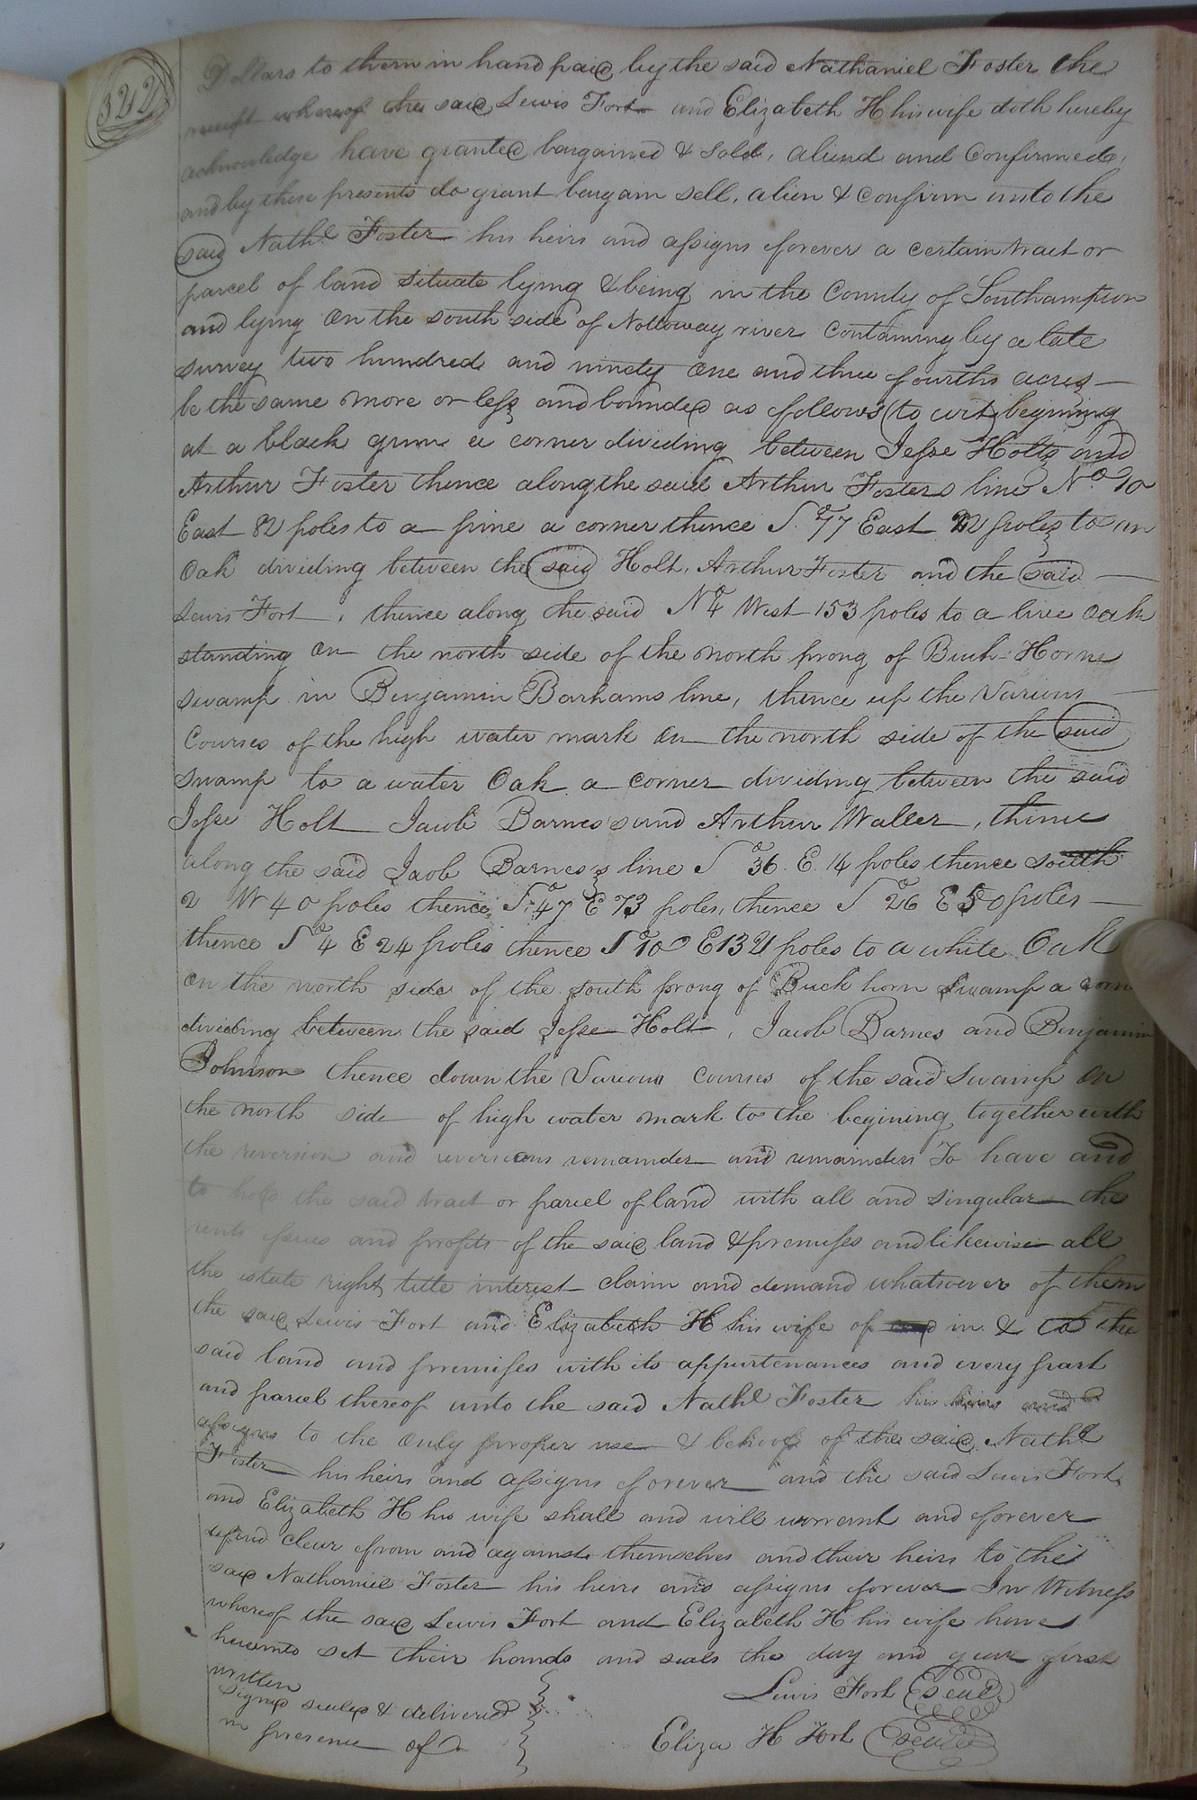 322
Dollars to them in hand paid by the said Nathaniel Foster the
receipt whereof the said Lewis Fort and Elizabeth H his wife doth hereby
acknowledge have granted bargained & sold, aliend and Confirmed,
and by these presents do grant bargain sell, alien & confirm unto the
said Nathl Foster his heirs and assigns forever a certain tract or
parcel of land situate lying & being in the County of Southampton
and lying on the south side of Nottoway river Containing by a late
survey two hundred and ninety one and three fourths acres —
be the same more or less and bounded as follows (to wit) begining
at a black gum a corner dividing between Jesse Holts and
Arthur Foster thence along the said Arthur Fosters line No 70
East 82 poles to a pine a corner thence S. 77 East 22 poles to an
Oak dividing between the said Holt, Arthur Foster and the said —
Lewis Fort, thence along the said N 4 West 153 poles to a live oak
standing on the north side of the north prong of Buck-Horne
swamp in Benjamin Barhams line, thence up the Various —
Courses of the high water mark on the north side of the said
swamp to a water Oak a corner dividing between the said
Jesse Holt Jacob Barnes and Arthur Waller, thence
along the said Jacob Barnes's line S 36. E. 14 poles thence south
2 W 40 poles thence S. 47 E 73 poles, thence S 26 E 50 poles —
thence S 4 E 24 poles thence S 10 E 132 poles to a white Oak
on the north side of the south prong of Buck horn Swamp a corn
dividing between the said Jesse Holt, Jacob Barnes and Benjamin
Johnson thence down the Various courses of the said Swamp on
the north side of high water mark to the begining together with
the reversion and reversions remainder and remainders To have and
to hold the said tract or parcel of land with all and singular the
rents issues and profits of the said land & premises and likewise all
the estate right title interest claim and demand whatsoever of them
the said Lewis Fort and Elizabeth H his wife of in & to the
said land and premises with its appurtenances and every part
and parcel thereof unto the said Nathl Foster his heirs and
assigns to the only proper use & behoof of the said Nathl
Foster his heirs and assigns forever and the said Lewis Fort
and Elizabeth H his wife shall and will warrant and forever
defend clear from and against themselves and their heirs to the
said Nathaniel Foster his heirs and assigns forever In Witness
whereof the said Lewis Fort and Elizabeth H his wife have
hereunto set their hands and seals the day and year first
written
Lewis Fort (seal)
Signed sealed & delivered
in presence of
Eliza H Fort (seal)